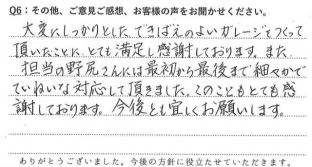 Q6：その他、ご意見ご感想、お客様の声をお聞かせください。
大変にしっかりとした、できばえのよいガレージをつくって
頂いたことに、とても満足し感謝しております。また、
担当の野尻さんには最初から最後まで細やかで
ていねいな対応して頂きました。このこともとても感
謝しております。今後とも宜しくお願いします。
ありがとうございました。今後の方針に役立たせていただきます。